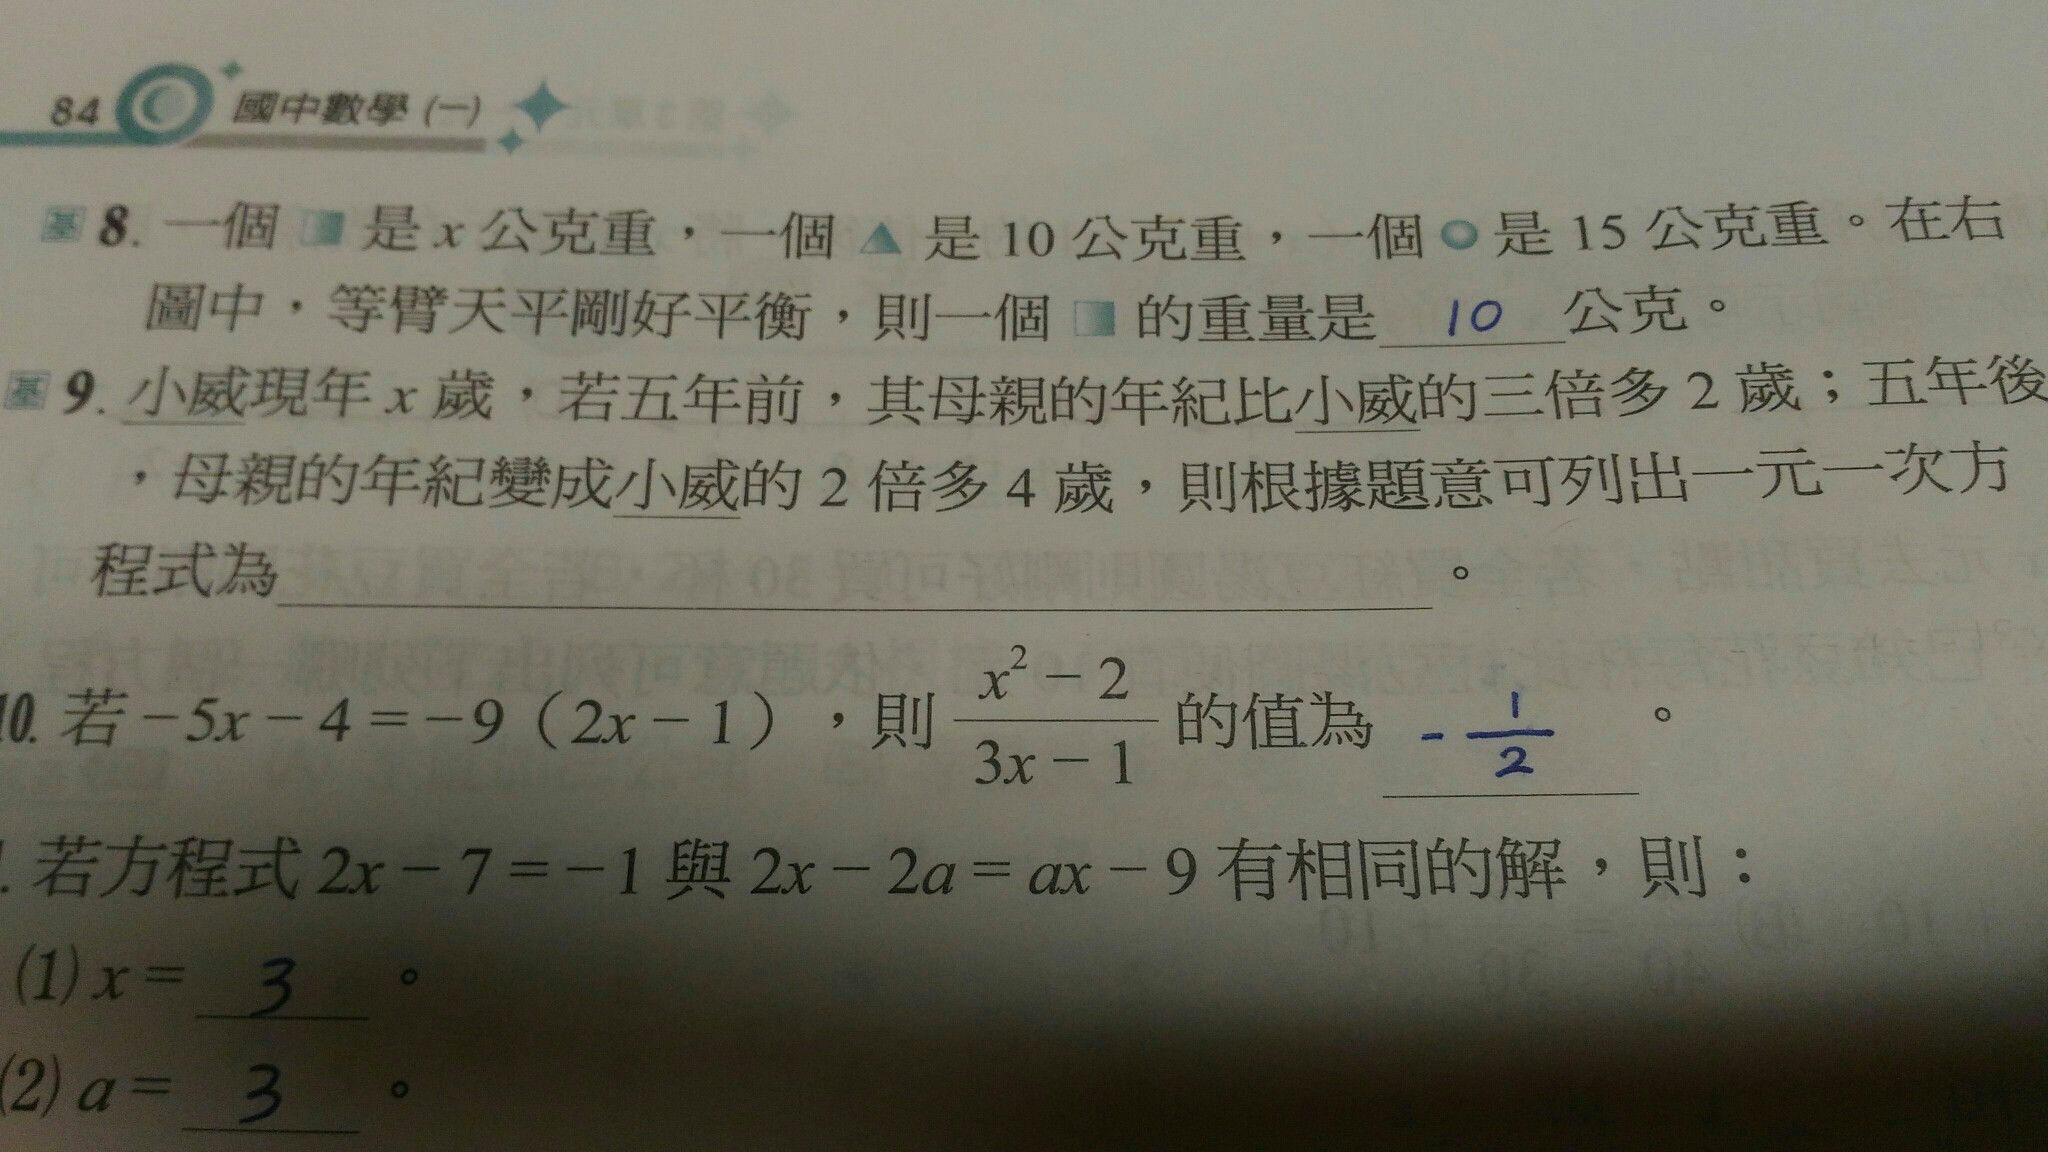 84 國中數學(一)
基 8. 一個 是 x 公克重，一個 是 10 公克重，一個 是 15 公克重。在右
圖中，等臂天平剛好平衡，則一個 的重量是 10 公克。
基 9. 小威現年 x 歲，若五年前，其母親的年紀比小威的三倍多 2 歲；五年後
，母親的年紀變成小威的 2 倍多 4 歲，則根據題意可列出一元一次方
程式為 。
10. 若 −5x − 4 = −9（2x − 1），則 x² − 2 / 3x − 1 的值為 - 1/2 。
. 若方程式 2x − 7 = −1 與 2x − 2a = ax − 9 有相同的解，則：
(1) x = 3 。
(2) a = 3 。